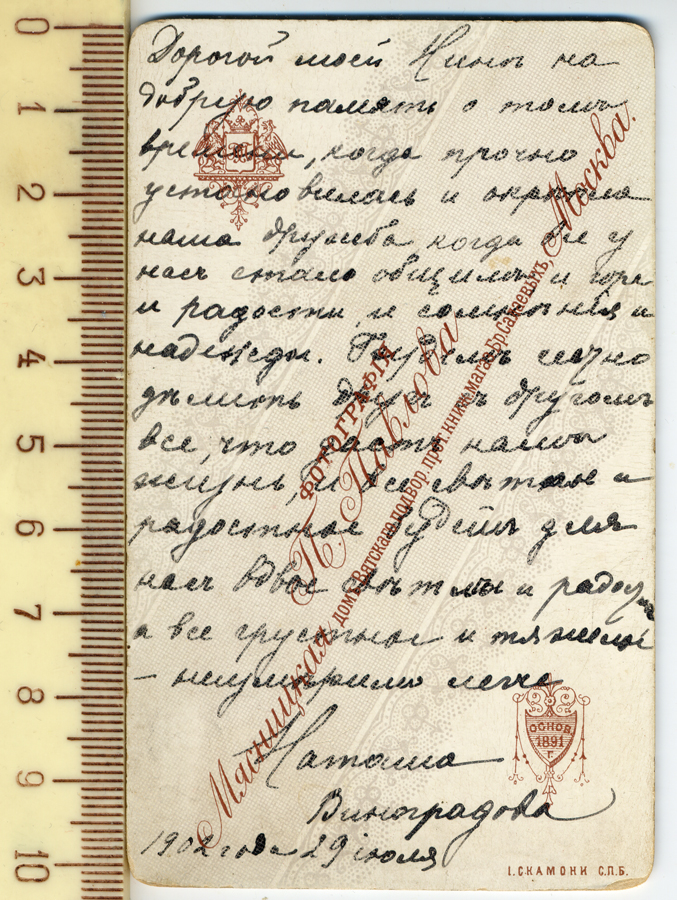 Дорогой моей Нинѣ на
добрую память о томъ
времени, когда прочно
установилась и окрѣпла
наша дружба когда все у
насъ стало общимъ и горе
и радости, и сомнѣнія и
надежды. Будемъ вѣчно
дѣлить другъ съ другомъ
все, что дастъ намъ
жизнь, и все свѣтлое и
радостное будетъ для
насъ вдвое свѣтлѣй и
а все грустное и тяжелое
– неизмѣримо легче
Наташа
Виноградова
1902 года 29 іюля
ФОТОГРАФІЯ
П. Павлова
Мясницкая домъ Вятскаго подвор. прот. книж. магаз. Бр. Салаевыхъ, Москва.
ОСНОВ.
1891
Г.
І. СКАМОНИ С.П.Б.
0
1
2
3
4
5
6
7
8
9
10